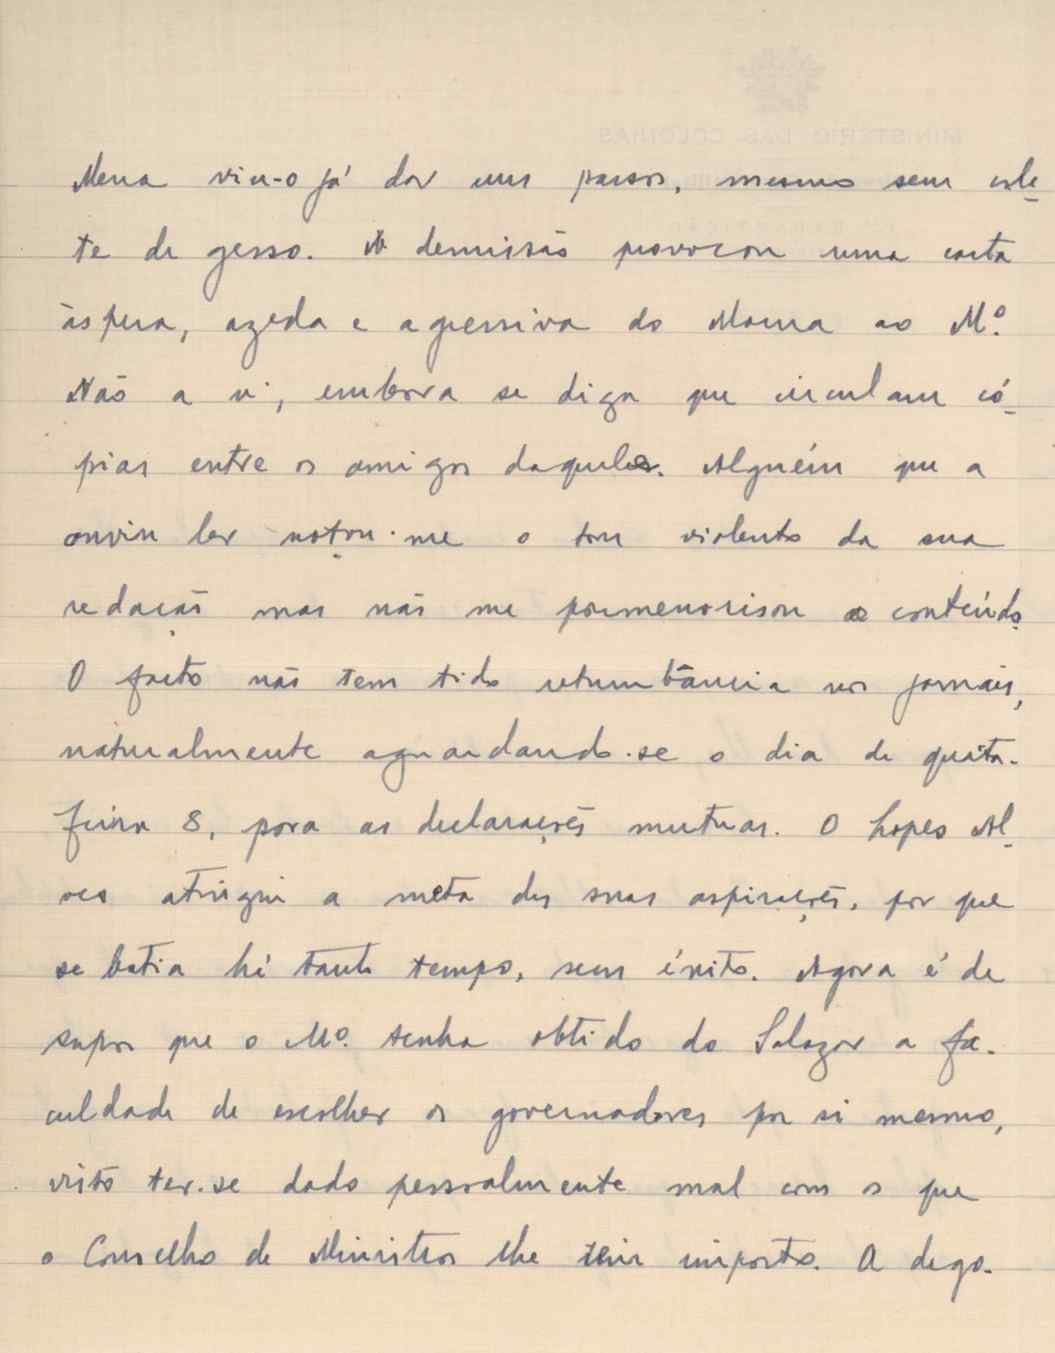 Mena viu-o já dar uns passos, mesmo sem cole-
te de gesso. A demissão provocou uma carta
áspera, azeda e agressiva do Moura ao Mº.
Não a vi, embora se diga que circulam có-
pias entre os amigos daquele. Alguém que a
ouviu ler notou-me o tom violento da sua
redação mas não me pormenorisou o conteúdo.
O facto não tem tido retumbância nos jornais,
naturalmente aguardando-se o dia de quarta-
feira 8, para as declarações mutuas. O Lopes Al-
ves atingiu a meta das suas aspirações, por que
se batia há tanto tempo, sem éxito. Agora é de
supor que o Mº. tenha obtido do Salazar a fa-
culdade de escolher os governadores por si mesmo,
visto ter-se dado pessoalmente mal com os que
o Conselho de Ministros lhe tem imposto. A dego-